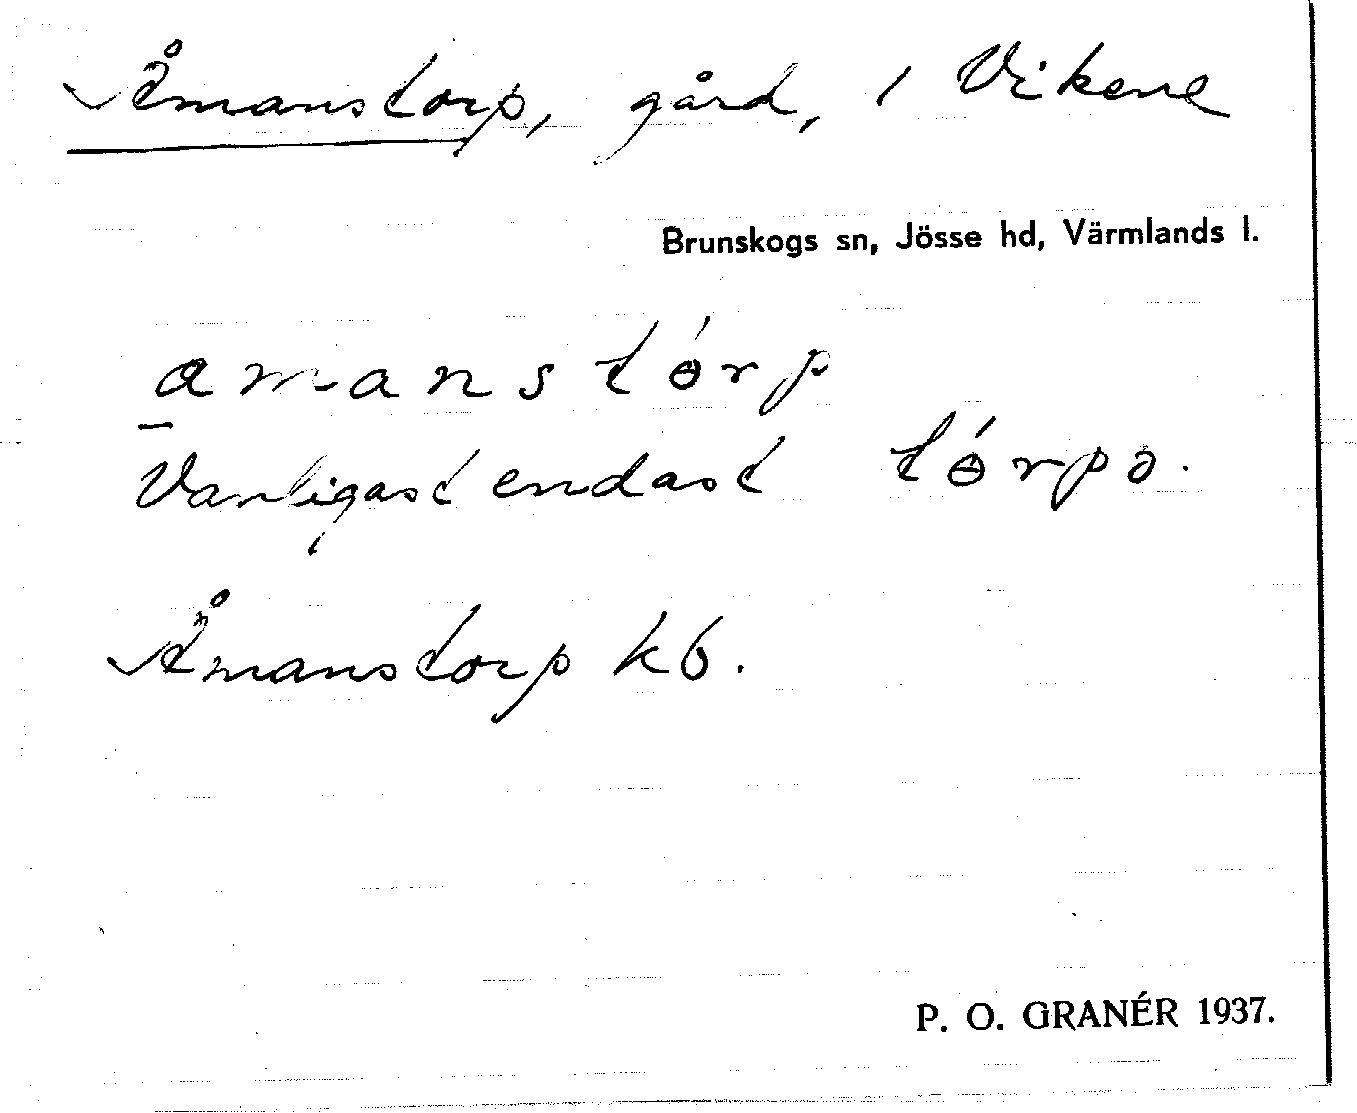 Åmanstorp, gård, i Vikene
Brunskogs sn, Jösse hd, Värmlands l.
amanstɵ́rp
Vanligast endast tɵ́rpə.
Åmanstorp kb.
P. O. GRANÉR 1937.